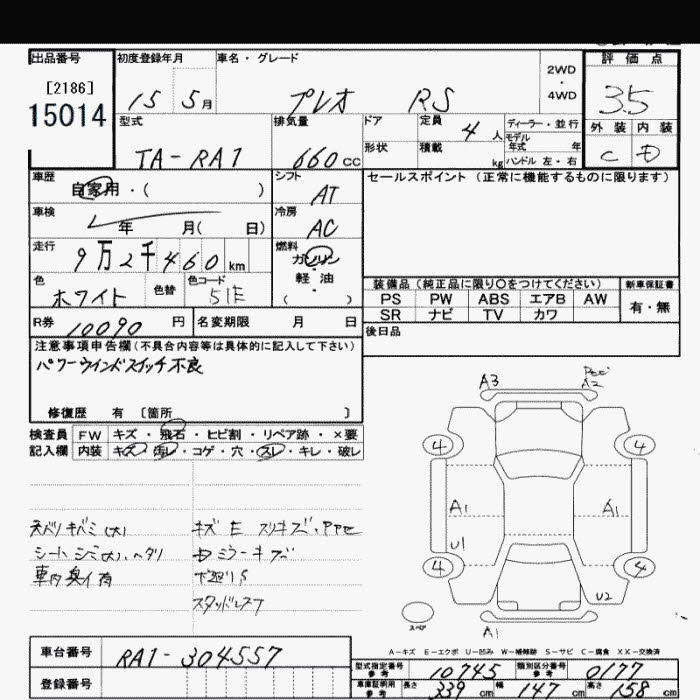 出品番号
[2186]
15014
初度登録年月
15 5月
車名・グレード
プレオ RS
2WD
・
4WD
評価点
3.5
外装 内装
C D
型式
TA-RA1
排気量
660 cc
ドア
定員
4人
ディーラー・並行
モデル
年式 年
形状
積載 kg
ハンドル 左・右
車歴
自家用・( )
シフト
AT
セールスポイント (正常に機能するものに限ります)
車検
年 月( 日)
冷房
AC
走行
9万2千460 km
燃料
ガソリン
・
軽油
( )
色
ホワイト
色替
色コード
51E
装備品 (純正品に限り〇をつけてください)
新車保証書
PS PW ABS エアB AW
SR ナビ TV カワ
有・無
R券 10090 円
名変期限 月 日
後日品
注意事項申告欄 (不具合内容等は具体的に記入して下さい)
パワーウインドスイッチ不良
修復歴 有 [箇所 ]
検査員
記入欄
FW キズ・飛石・ヒビ割・リペア跡・×要
内装 キズ・汚レ・コゲ・穴・スレ・キレ・破レ
天バリキバミ(大)
シートシミ(大)、ヘタリ
車内臭イ有
キズ E スリキズ・
ミラーキズ
下廻りS
スタッドレス
A3
A2
4
4
A1
A1
U1
4
4
U2
スペア
A1
A-キズ E-エクボ U-凹み W-補修跡 S-サビ C-腐食 XX-交換済
車台番号
RA1-304557
登録番号
型式指定番号
参考
10745
類別区分番号
参考
0177
車庫証明用
参考
長さ 339 cm 幅 147 cm 高さ 158 cm